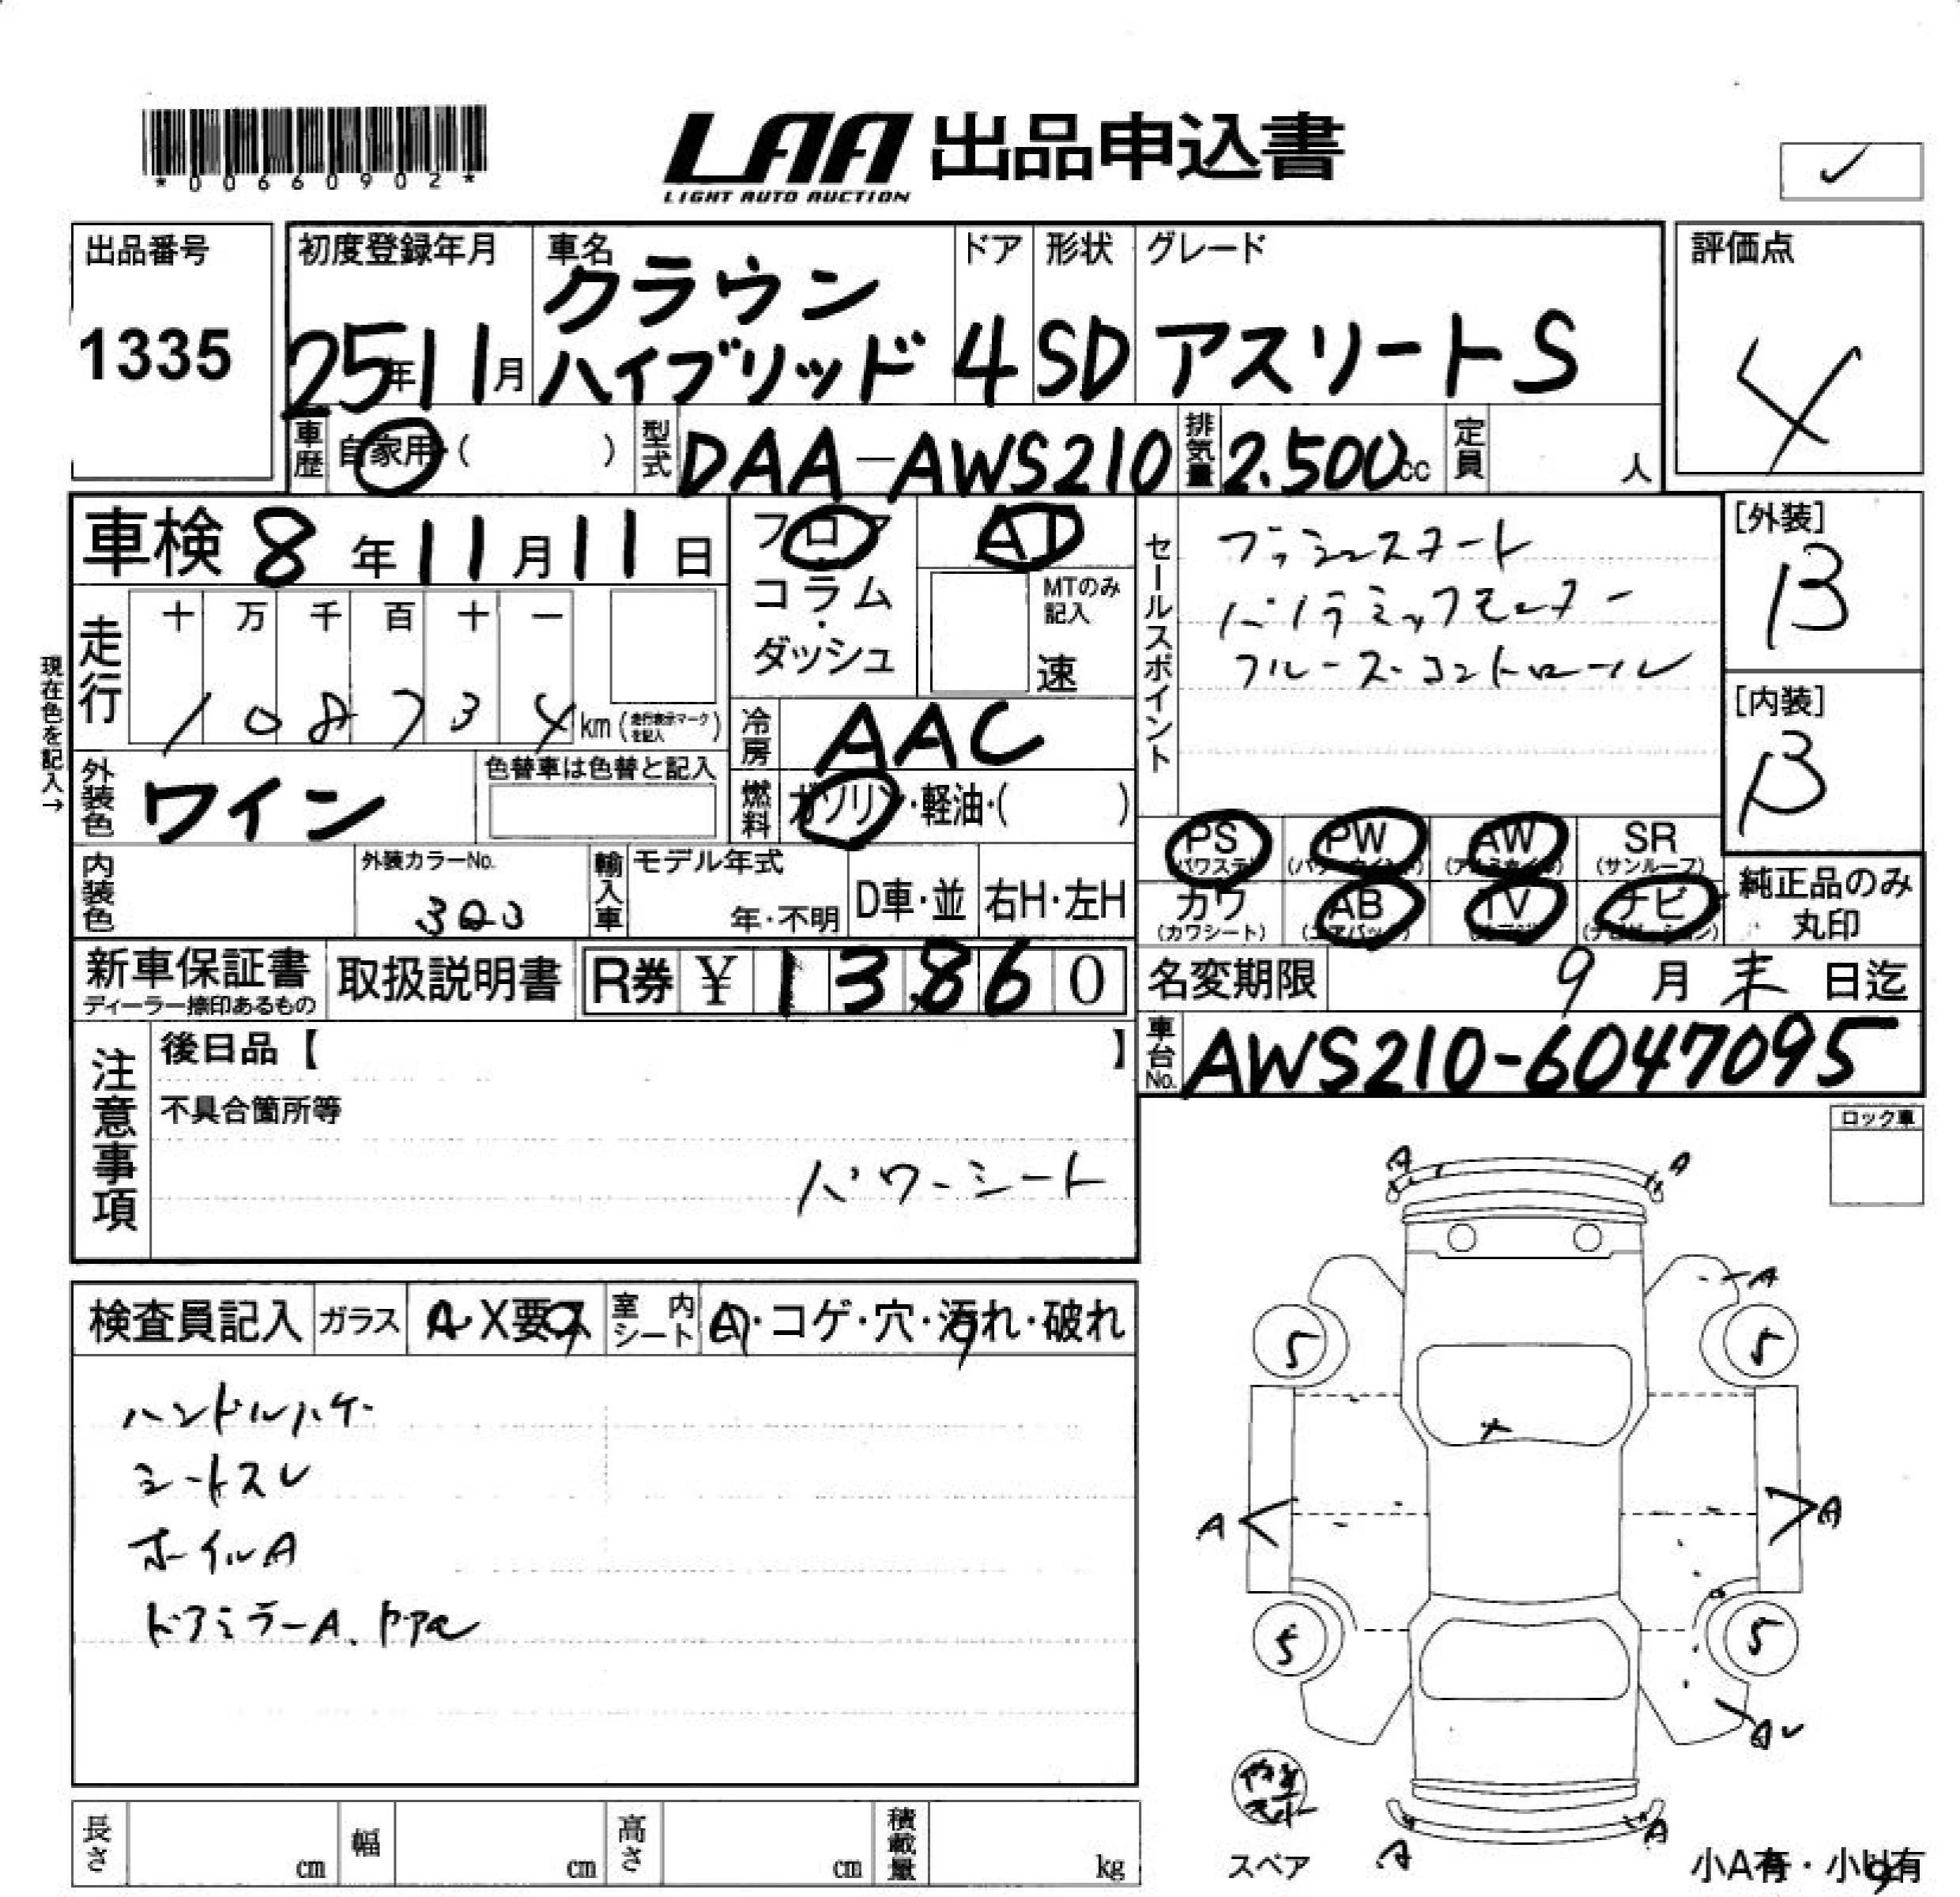 *00660902*
LAA 出品申込書
LIGHT AUTO AUCTION
出品番号
1335
初度登録年月
25年11月
車名
クラウン
ハイブリッド
ドア
4
形状
SD
グレード
アスリートS
評価点
4
車歴 自家用・( )
型式 DAA-AWS210
排気量 2.500cc
定員 人
車検 8年11月11日
フロア
コラム
・
ダッシュ
AT
MTのみ
記入
速
セールスポイント
プッシュスタート
パノラミックモニター
クルーズコントロール
[外装]
B
[内装]
B
現在色を記入→
走行
十 万 千 百 十 一
1 0 8 7 3 4 km (走行表示マークを記入)
冷房 AAC
燃料 ガソリン・軽油・( )
外装色 ワイン
色替車は色替と記入
内装色
外装カラーNo.
3Q3
輸入車
モデル年式
年・不明
D車・並
右H・左H
PS (パワステ)
PW (パワーウインド)
AW (アルミホイル)
SR (サンルーフ)
カワ (カワシート)
AB (エアバック)
TV
ナビ (ナビゲーション)
純正品のみ
丸印
新車保証書
ディーラー捺印あるもの
取扱説明書
R券 ¥ 13860
名変期限 9月末日迄
車台No. AWS210-6047095
注意事項
後日品【 】
不具合箇所等
パワーシート
ロック車
検査員記入
ガラス A・X要ス
室内シート A・コゲ・穴・汚れ・破れ
ハンドルハゲ
シートスレ
ホイルA
ドアミラーA.
A A
A
5 5
A A
5 5
A
A
スペア
小A有・小U有
長さ cm
幅 cm
高さ cm
積載量 kg